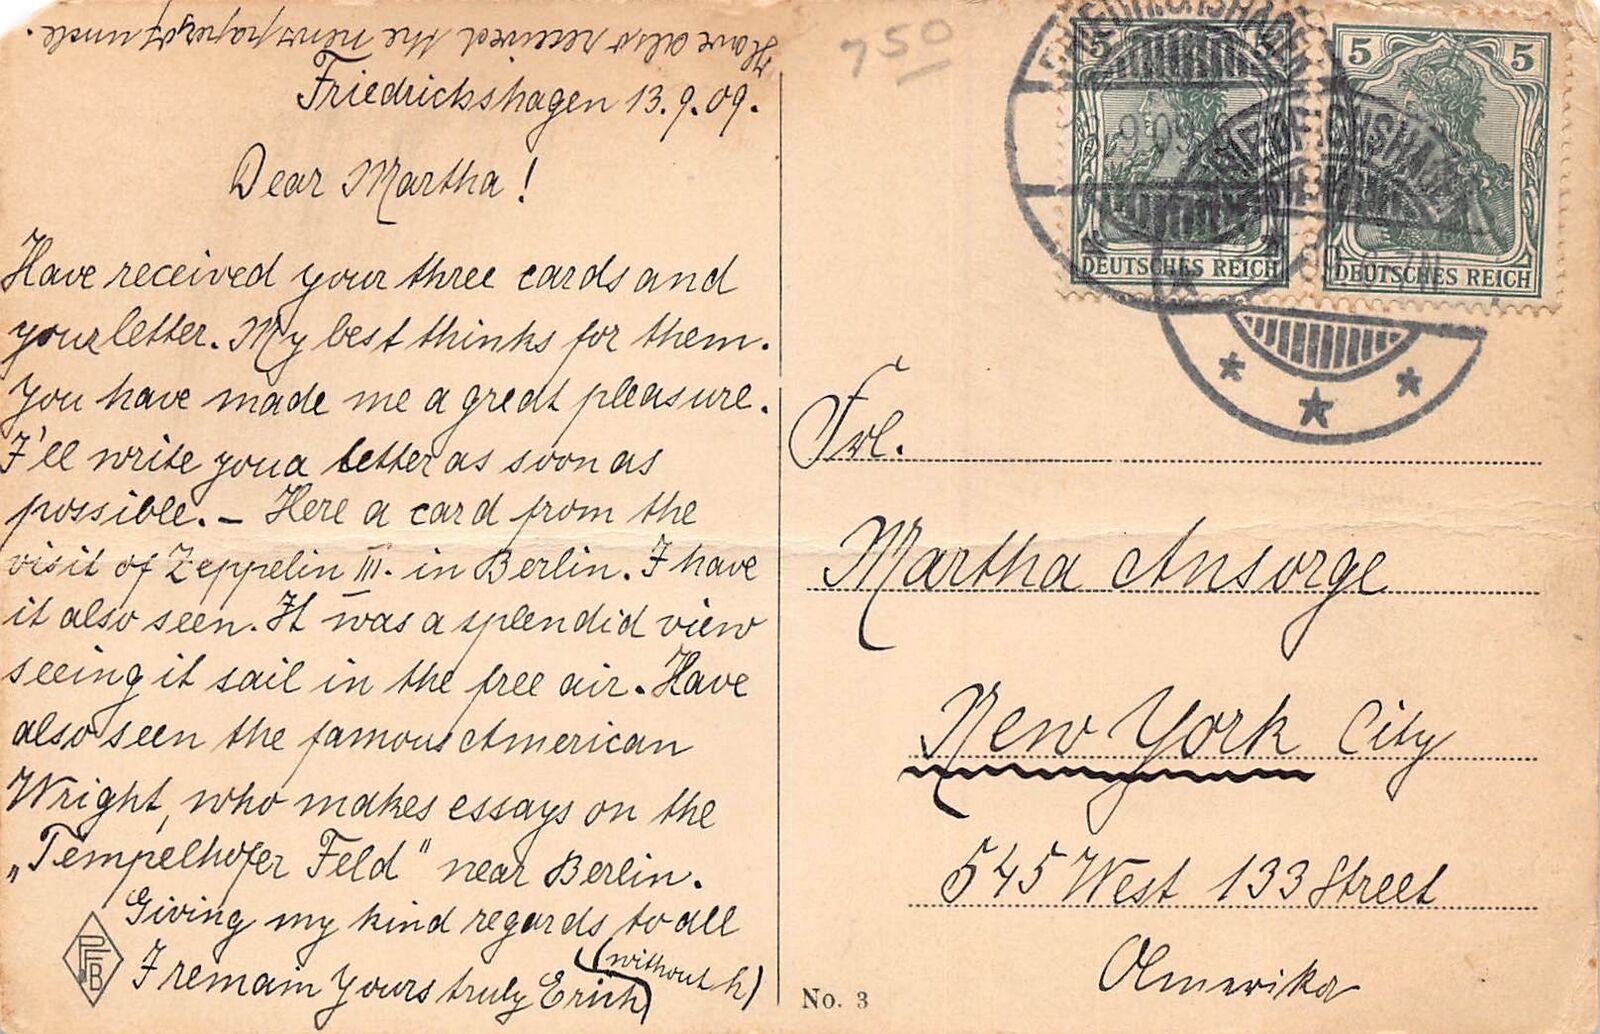 Have also received the newspaper of uncle.
Friedrichshagen 13.9.09.
Dear Martha!
Have received your three cards and
your letter. My best thinks for them.
You have made me a great pleasure.
I'll write you a letter as soon as
possible. – Here a card from the
visit of Zeppelin III. in Berlin. I have
it also seen. It was a splendid view
seeing it sail in the free air. Have
also seen the famous American
Wright, who makes essays on the
„Tempelhofer Feld" near Berlin.
Giving my kind regards to all
I remain Yours truly Erich
(without h)
PFB
750
5 5
DEUTSCHES REICH
FRIEDRICHSHAGEN
9 09
5 5
DEUTSCHES REICH
FRIEDRICHSHAGEN
Frl.
Martha Ansorge
New York City
545 West 133 Street
Amerika
No. 3